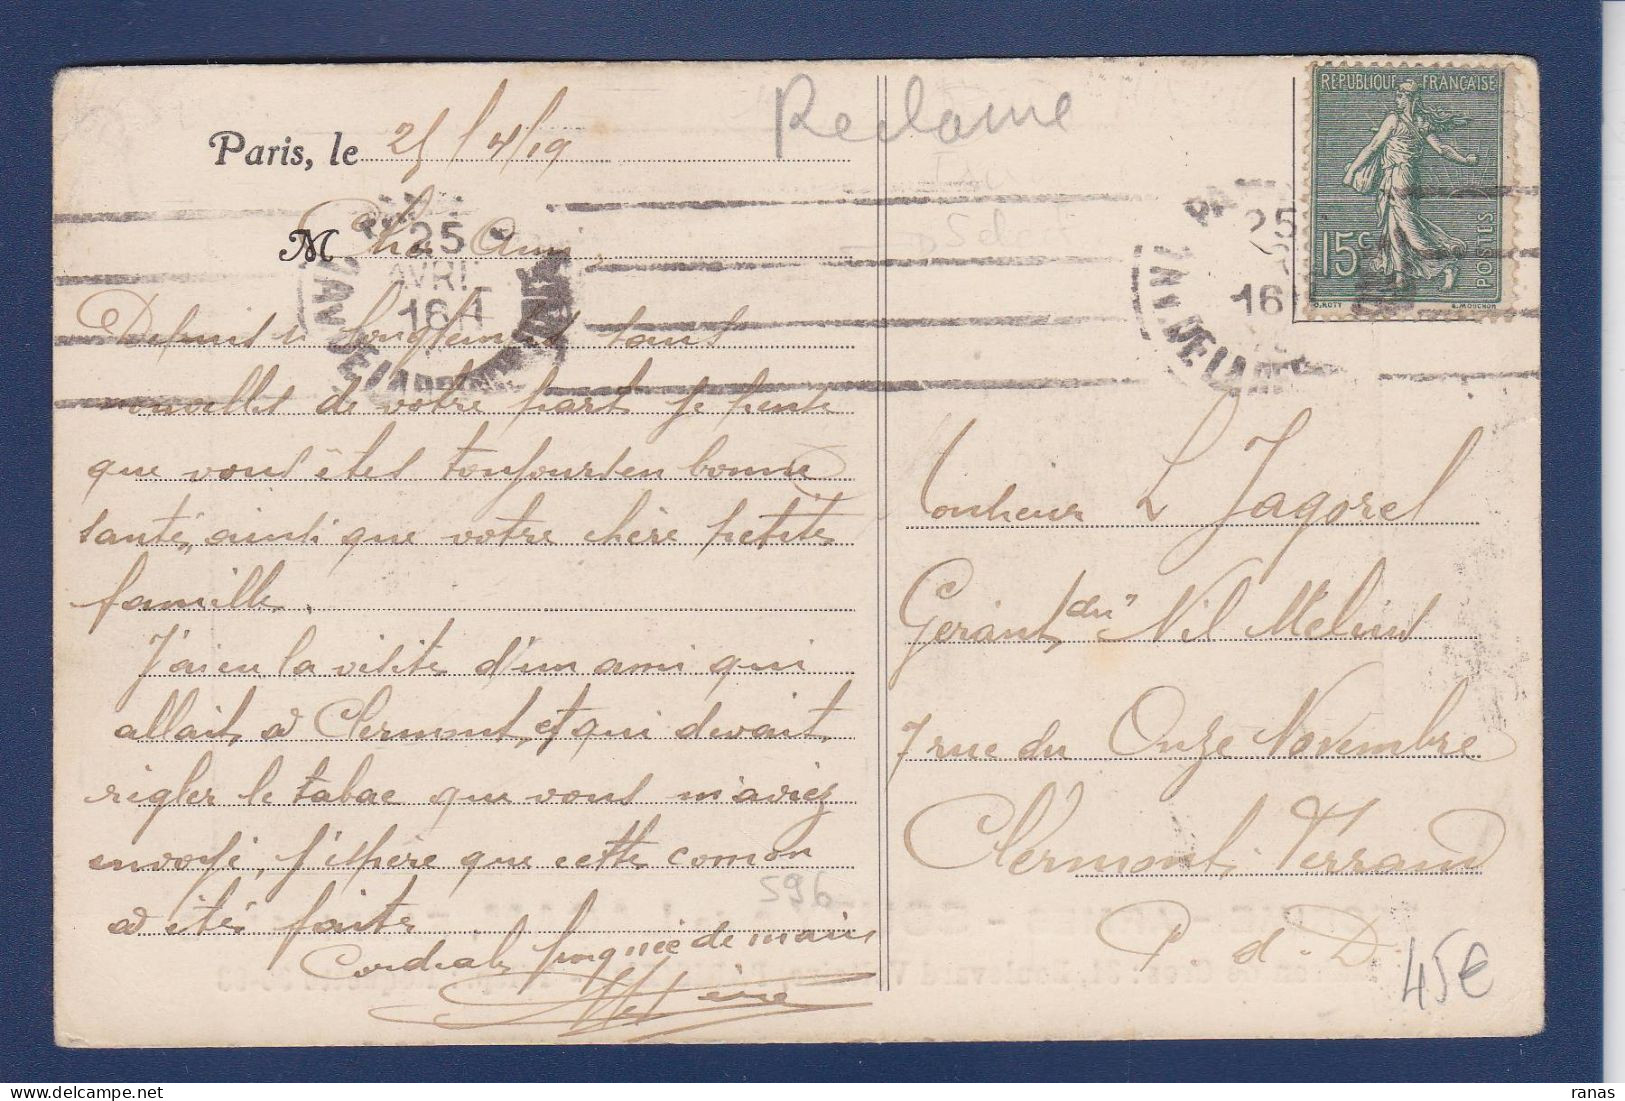 Paris, le 25/4/19
Reclame
REPUBLIQUE FRANÇAISE
15c
POSTES
O. ROTY
E. MOUCHON
25
AVRIL
16 H
PARIS
25
16
M Cher Ami,
Depuis si longtemps sans
nouvelles de votre part je pense
que vous êtes toujours en bonne
santé, ainsi que votre chère petite
famille.
J'ai eu la visite d'un ami qui
allait à Clermont, et qui devait
régler le tabac que vous m'aviez
envoyé, j'espère que cette comon
a étés faite.
Cordiale poignée de main
596
Monsieur L Jagorel
Gérant "du" Nil Melun
7 rue du Onze Novembre
Clermont. Ferrand
P. d. D.
45€
ranas